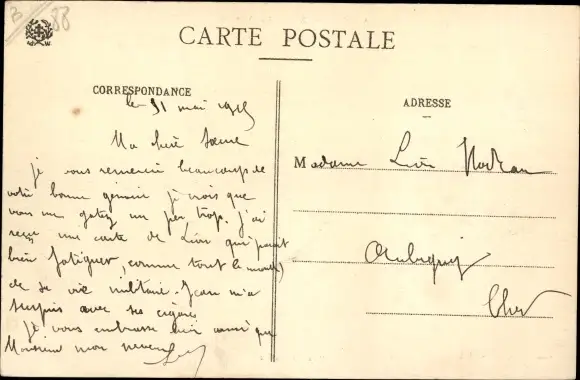 B 88
CARTE POSTALE
CORRESPONDANCE
le 31 mai 1915
Ma chère Soeur
je vous remercie beaucoup de
votre bonne je vois que
vous me gatez un peu trop. J'ai
reçu une carte de Léon qui parait
bien fatiguer, comme tout le monde,
de sa vie militaire. Jean m'a
surpris avec ses cigares
Je vous embrasse ainsi que
Monsieur mon neveu
ADRESSE
Madame Léon
Aubigny
Cher